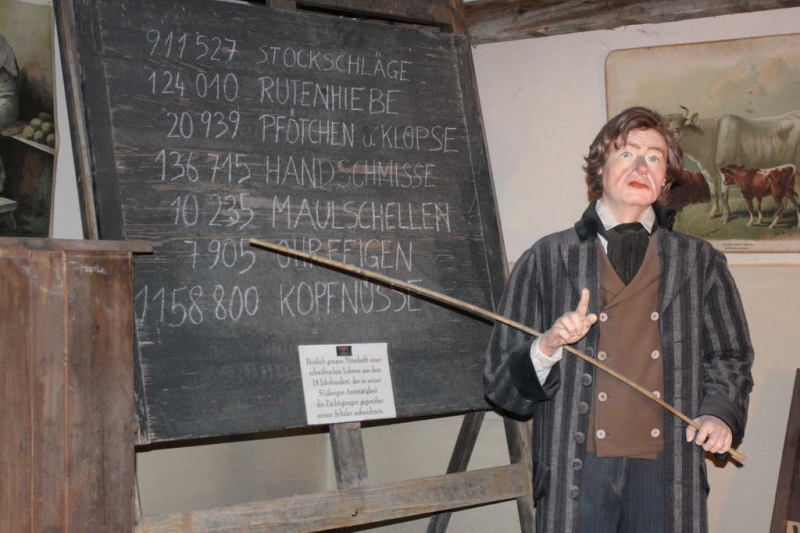 911527 STOCKSCHLÄGE
124 010 RUTENHIEBE
20 939 PFÖTCHEN U. KLOPSE
136 715 HANDSCHMISSE
10 235 MAULSCHELLEN
7 905 OHRFEIGEN
1158 800 KOPFNÜSSE
Peinlich genaue Mitschrift eines
schwäbischen Lehrers aus dem
18. Jahrhundert, der in seiner
51jährigen Amtstätigkeit
die Züchtigungen gegenüber
seinen Schüler aufzeichnete.